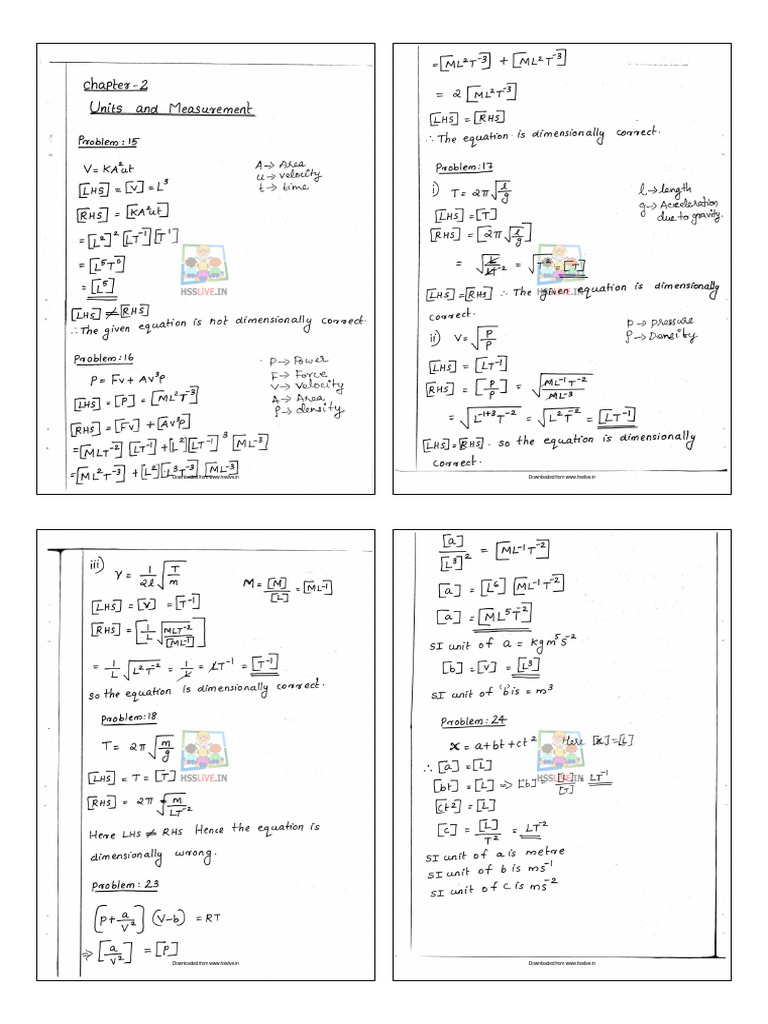 Chapter-2
Units and Measurement
Problem:15
V = KA²ut
A → Area
u → velocity
t → time
[LHS] = [V] = L³
[RHS] = [KA²ut]
= [L²]² [LT⁻¹] [T¹]
= [L⁵T⁰]
= [L⁵]
[LHS] ≠ [RHS]
∴ The given equation is not dimensionally correct.
Problem:16
P = Fv + Av³ρ
P → Power
F → Force
V → Velocity
A → Area
ρ → density
[LHS] = [P] = [ML²T⁻³]
[RHS] = [Fv] + [Av³ρ]
= [MLT⁻²] [LT⁻¹] + [L²] [LT⁻¹]³ [ML⁻³]
= [ML²T⁻³] + [L²] [L³T⁻³] [ML⁻³]
HSSLIVE.IN
Downloaded from www.hsslive.in
= [ML²T⁻³] + [ML²T⁻³]
= 2 [ML²T⁻³]
[LHS] = [RHS]
∴ The equation is dimensionally correct.
Problem:17
i) T = 2π√(l/g)
l → length
g → Acceleration
due to gravity.
[LHS] = [T]
[RHS] = [2π√(l/g)]
= √(L/LT⁻²) = √T² = [T]
[LHS] = [RHS] ∴ The given equation is dimensionally
correct.
ii) V = √(P/ρ)
P → pressure
ρ → Density
[LHS] = [LT⁻¹]
[RHS] = [√(P/ρ)] = √(ML⁻¹T⁻²/ML⁻³)
= √(L⁻¹⁺³T⁻²) = √(L²T⁻²) = [LT⁻¹]
[LHS] = [RHS]. so the equation is dimensionally
correct.
HSSLIVE.IN
Downloaded from www.hsslive.in
iii) γ = 1/2l √(T/m)
M = [M]/[L] = [ML⁻¹]
[LHS] = [ν] = [T⁻¹]
[RHS] = [1/L √(MLT⁻²/[ML⁻¹])]
= 1/L √(L²T⁻²) = 1/L = LT⁻¹ = [T⁻¹]
so the equation is dimensionally correct.
Problem:18
T = 2π√(m/g)
[LHS] = T = [T]
[RHS] = 2π√(M/LT⁻²)
Here LHS ≠ RHS Hence the equation is
dimensionally wrong.
Problem:23
(P + a/V²) (V-b) = RT
⇒ [a/V²] = [P]
HSSLIVE.IN
Downloaded from www.hsslive.in
[a]/[L³]² = [ML⁻¹T⁻²]
[a] = [L⁶] [ML⁻¹T⁻²]
[a] = [ML⁵T⁻²]
SI unit of a = kgm⁵s⁻²
[b] = [V] = [L³]
SI unit of 'b' is = m³
Problem:24
x = a+bt+ct² Here [x]=[L]
∴ [a] = [L]
[bt] = [L] ⇒ [b] = [L]/[T] = LT⁻¹
[ct²] = [L]
[c] = [L]/T² = LT⁻²
SI unit of a is metre
SI unit of b is ms⁻¹
SI unit of c is ms⁻²
HSSLIVE.IN
Downloaded from www.hsslive.in